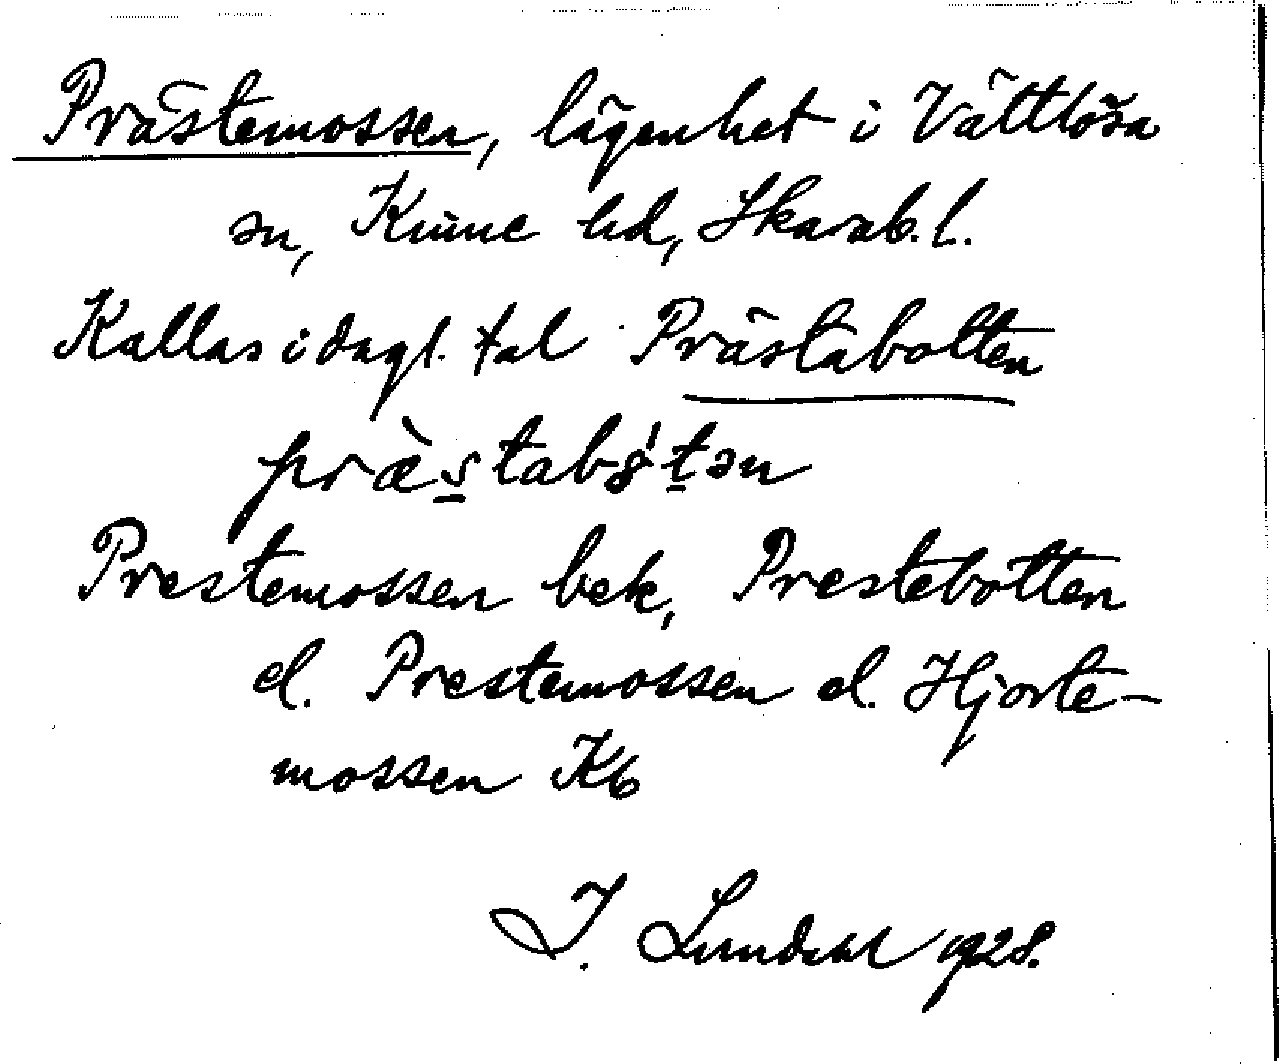 Prästemossen, lägenhet i Vättlösa
sn, Kinne hd, Skarab. l.
Kallas i dagl. tal Prästabotten
præ̀stab8'tən
Prestemossen bek, Prestebotten
el. Prestemossen el. Hjorte-
mossen Kb
I. Lundahl 1928.